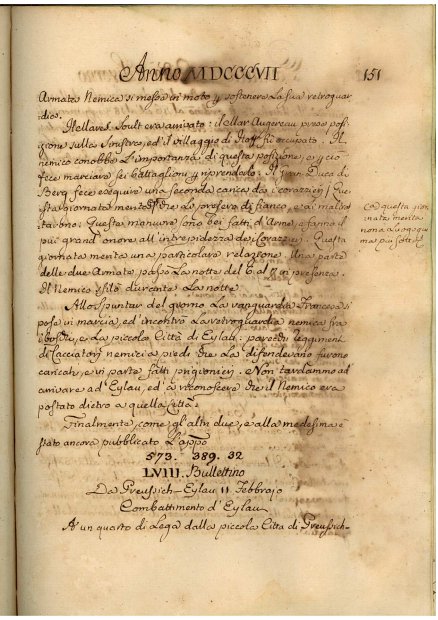 Anno MDCCCVII
151
Armata Nemica si messa in moto p sostenere la sua retroguar
dia.
Il Mares. Soult era arrivato: il Mar Augereau prese posi
zione sulla Sinistra, ed il villaggio di Hoff fù occupato. Il
nemico conobbe l'importanza di questa posizione, e
fece marciare sei battaglioni p riprenderlo. Il Gran Duca di
Berg fece eseguire una seconda carica da i corazzieri
di fianco, e
Queste manuvre sono bei fatti d'Arme, e fanno il
più grand'onore all'intrepidezza dei Corazzieri. Questa
giornata merita una particolare relazione. Una parte
delle due Armate passò la notte del 6. al 7. in presenza.
Il Nemico sfilò durante la notte.
questa gior
nata merita
Allo spuntar del giorno la vanguardia Francese si
pose in marcia, ed incontrò la retroguardia nemica fra
i boschi, e la piccola Città di Eylau: parecchj reggimenti
di Cacciatori nemici a piedi che la difendevano furono
caricati, e in parte fatti prigionieri. Non tardammo ad
arrivare ad Eylau, ed a riconoscere che il Nemico era
postato dietro a quella Città.
Finalmente, come gl'altri due, e alla medesima è
stato ancora pubblicato l'appo
573. 389. 32
LVIII. Bullettino
Da Preussich-Eylau 11 Febbrajo
Combattimento d'Eylau
A un quarto di Lega dalla piccola Città di Preussich-